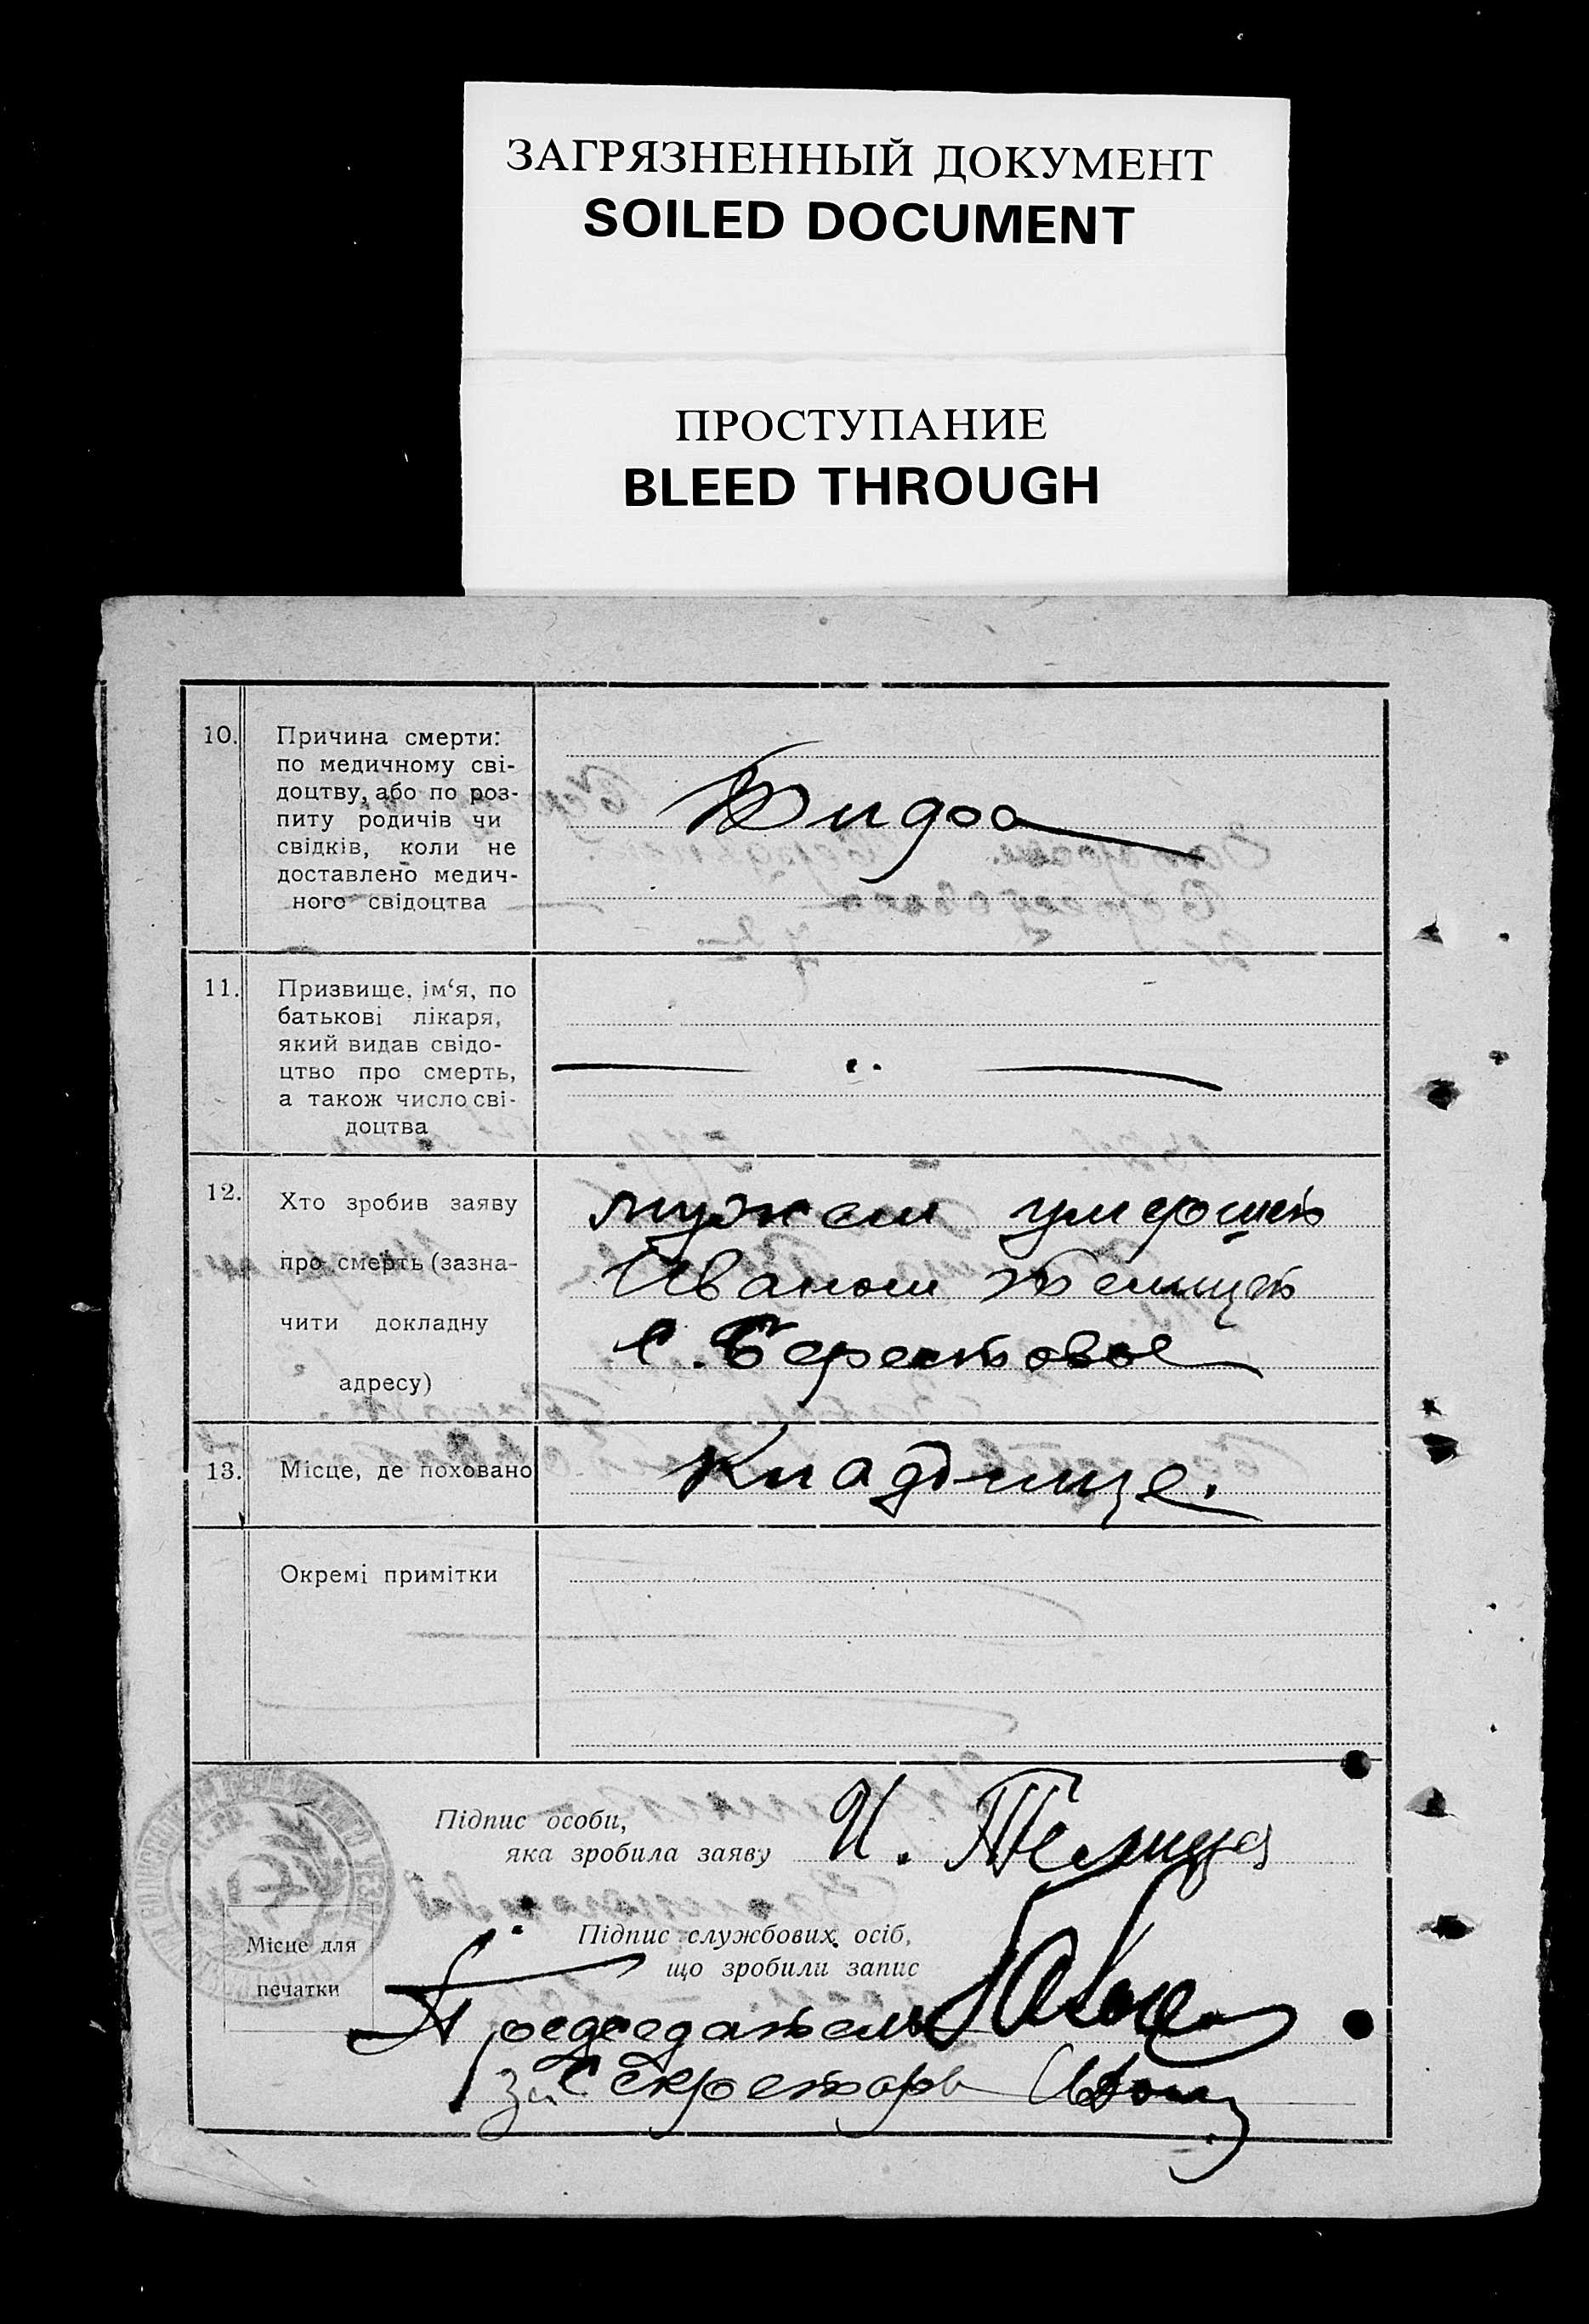 ЗАГРЯЗНЕННЫЙ ДОКУМЕНТ
SOILED DOCUMENT
ПРОСТУПАНИЕ
BLEED THROUGH
10. Причина смерти:
по медичному сві-
доцтву, або по роз-
питу родичів чи
свідків, коли не
доставлено медич-
ного свідоцтва
11. Призвище, ім‘я, по
батькові лікаря,
який видав свідо-
цтво про смерть,
а також число сві-
доцтва
12. Хто зробив заяву
про смерть (зазна-
чити докладну
адресу)
мужем умершей
Иваном Телицей
с. Берестовое
13. Місце, де поховано
Кладбище.
Окремі примітки
Підпис особи,
яка зробила заяву
И. Телица
Місце для
печатки
Підпис службових осіб,
що зробили запис
Председатель
за Секретаря